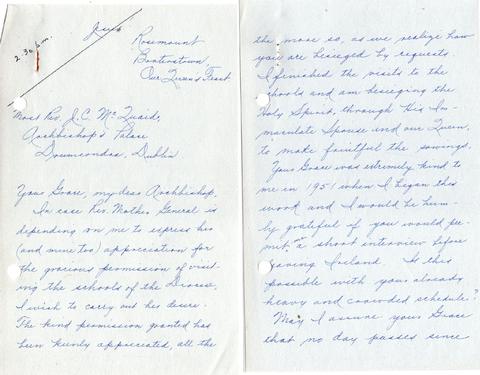 2.30 p.m.
July 6
Rosemount
Booterstown
Our Queen's Feast
Most Rev. J.C. McQuaid,
Archbishop's Palace
Drumcondra, Dublin
Your Grace, my dear Archbishop,
In case Rev. Mother General is
depending on me to express her
(and mine too) appreciation for
the gracious permission of visit-
ing the schools of the Diocese,
I wish to carry out her desire.
The kind permission granted has
been keenly appreciated, all the
the more so, as we realize how
you are besieged by requests.
I finished the visits to the
schools and am besieging the
Holy Spirit, through His Im-
maculate Spouse and our Queen,
to make fruitful the sowings.
Your Grace was extremely kind to
me in 1951 when I began this
work and I would be hum-
bly grateful if you would per-
mit me a short interview before
leaving Ireland. Is this
possible with your already
heavy and crowded schedule?
May I assure your Grace
that no day passes since